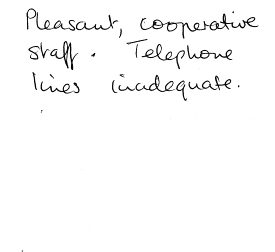 Pleasant, cooperative
staff. Telephone
lines inadequate.